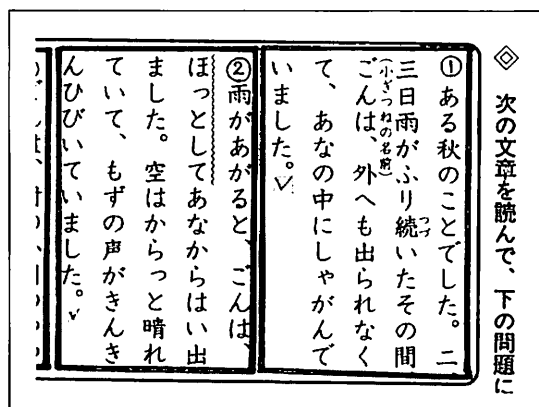 ◇ 次の文章を読んで、下の問題に
①ある秋のことでした。二、
三日雨がふり続いたその間、
つづ
(小ぎつねの名前)
ごんは、外へも出られなく
て、あなの中にしゃがんで
いました。
②雨があがると、ごんは、
ほっとしてあなからはい出
ました。空はからっと晴れ
ていて、もずの声がきんき
んひびいていました。